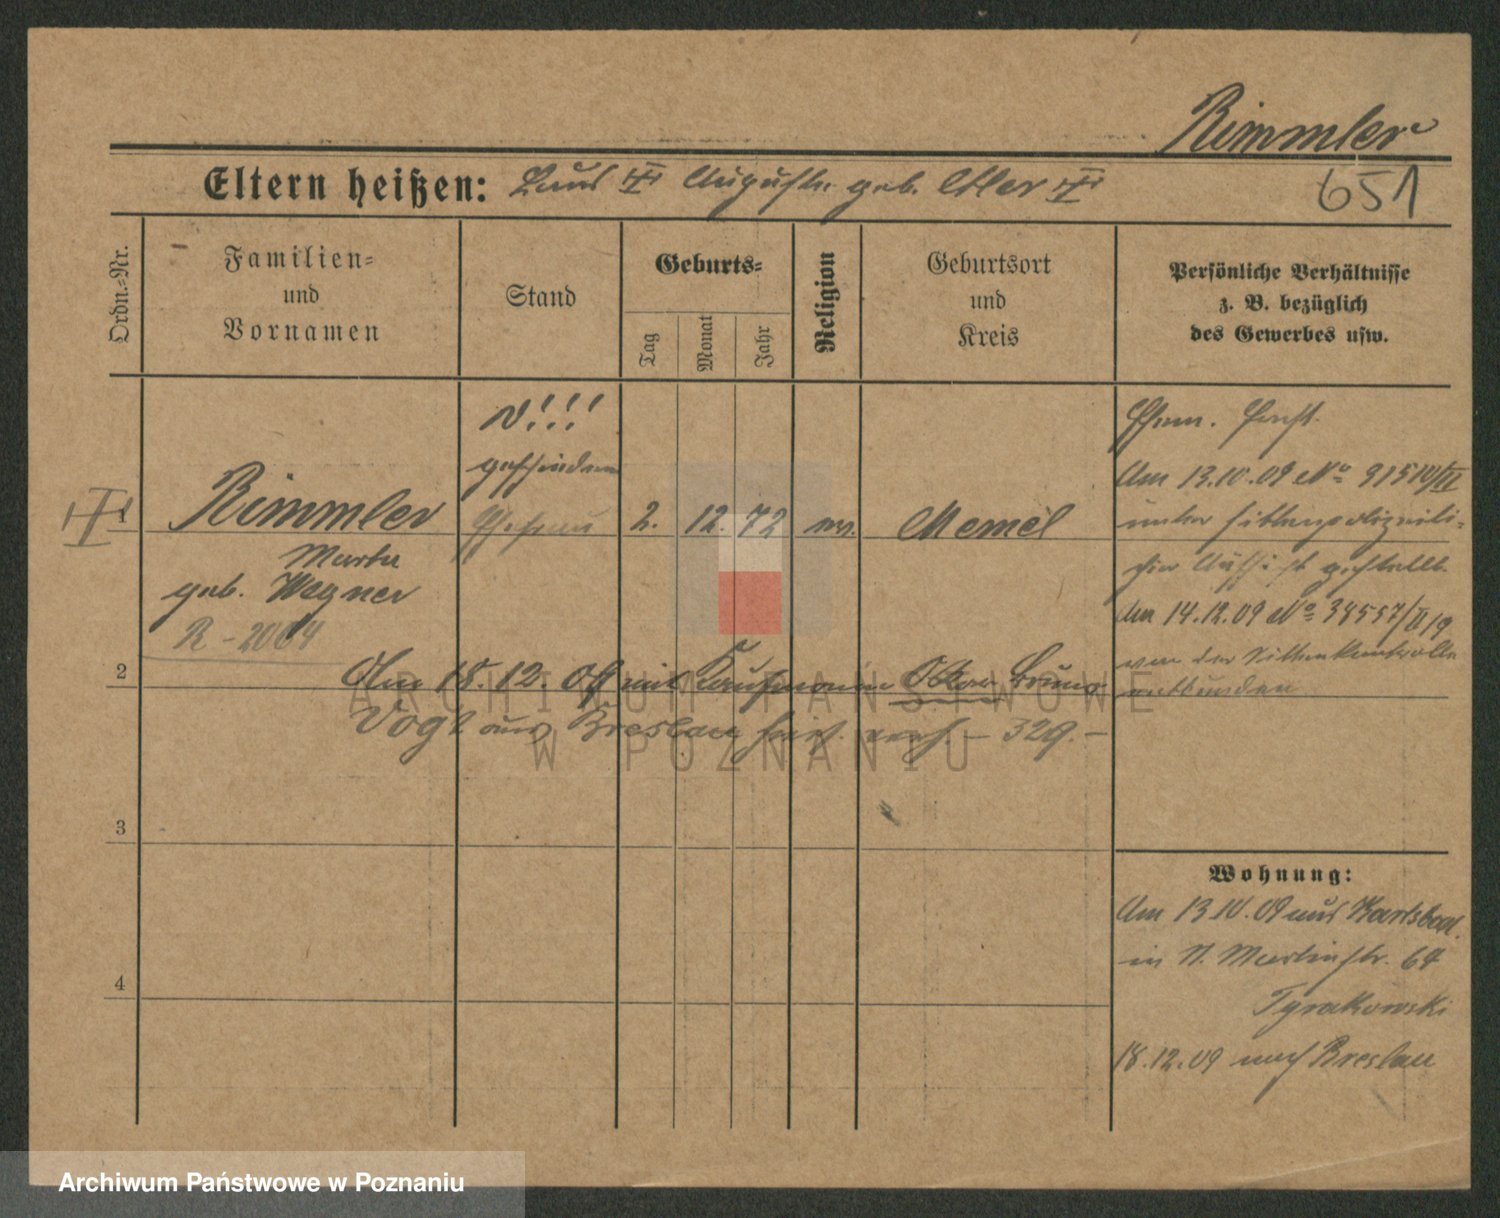 Rimmler
651
Eltern heißen: Auguste geb.
Ordn.-Nr.
Familien-
und
Vornamen
Stand
Geburts-
Tag
Monat
Jahr
Religion
Geburtsort
und
Kreis
Persönliche Verhältnisse
z. B. bezüglich
des Gewerbes usw.
N!!!
geschieden
1 Rimmler Ehefrau 2. 12. 72 ev. Memel
Martha
geb. Wegner
R - 2064
Am 13.10.09 No 31510/II
unter sittenpolizeili-
che Aufsicht gestellt.
Am 14.12.09 No 38557/II 19
von der Sittenkontrolle
entbunden
2
Am 18. 12. 09 mit Kaufmann Oskar Bruno
Vogt aus Breslau hier verh. - 329. -
3
4
Wohnung:
Am 13.10.09 aus Karlsbad.
in St. Martinstr. 64
Tyrakowski
18.12.09 nach Breslau
ARCHIWUM PAŃSTWOWE
W POZNANIU
Archiwum Państwowe w Poznaniu